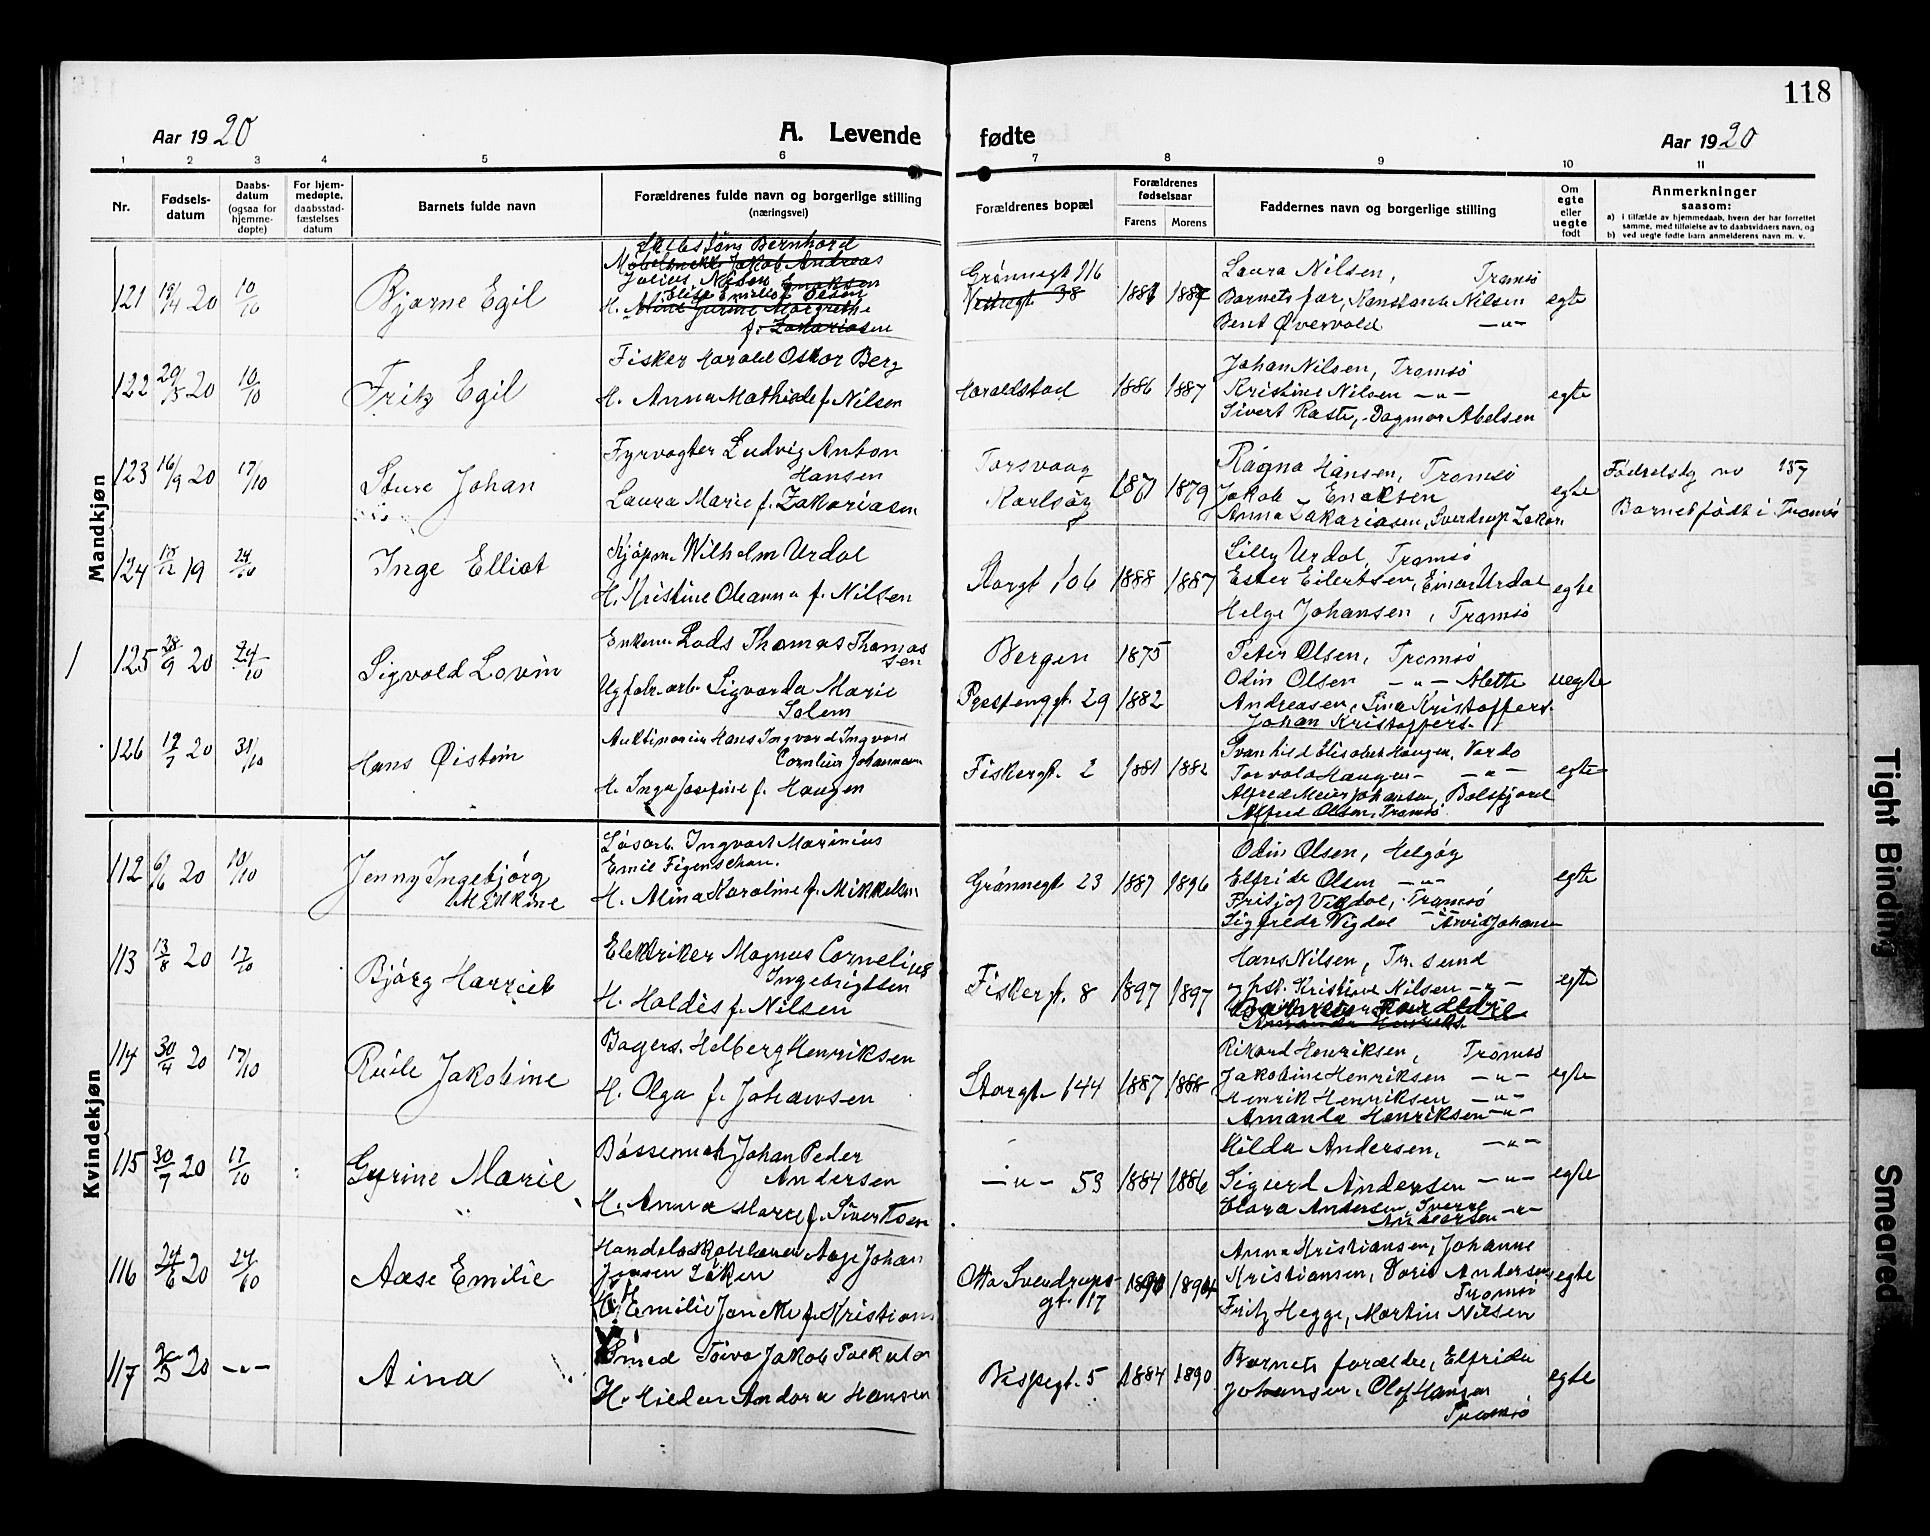 118
Aar 1920
A. Levende fødte
Aar 1920
1 2 3 4 5 6 7 8 9 10 11
Nr.
Fødsels-
datum
Daabs-
datum
(ogsaa for
hjemme-
døpte)
For hjem-
medøpte,
daabsstad-
fæstelses
datum
Barnets fulde navn
Forældrenes fulde navn og borgerlige stilling
(næringsvei)
Forældrenes bopæl
Forældrenes
fødselsaar
Farens Morens
Faddernes navn og borgerlige stilling
Om
egte
eller
uegte
født
Anmerkninger
saasom:
a) i tilfælde av hjemmedaab, hvem der har forrettet
samme, med tilføielse av to daabsvidners navn, og
b) ved uegte fødte barn anmelderens navn m. v.
Mandkjøn
121 19/4 20 10/10 Bjarne Egil
Bernhard
Jakob Andreas
Julius Nilsen
Grønnegt 116
38
1881
Laura Nilsen, Tromsø
Barnets far, Konstanse Nilsen
Bent Øvervold -"-
egte
122 20/5 20 10/10 Fritz Egil
Fisker Harald Oskar Berg
H. Anna Mathilde f. Nilsen
Haraldstad 1886 1887
Johan Nilsen, Tromsø
Kristine Nilsen -"-
Sivert Raste, Dagmar Abelsen
egte
123 16/9 20 17/10 Sture Johan
Fyrvogter Ludvig Anton
Hansen
Laura Marie f. Zakariasen
Torsvaag
Karlsøy
1871 1879
Ragna Hansen, Tromsø
Jakob Enoksen
Anna Zakariasen, Sverdrup Zakar
egte
Fødselsdg no 157
Barnet født i Tromsø
124 15/12 19 24/10 Inge Elliot
Kjøpm. Wilhelm Urdal
H. Kristine Oleanna f. Nilsen
Storgt 106 1888 1887
Lilly Urdal, Tromsø
Ester Eilertsen, Einar Urdal
Helge Johansen, Tromsø
egte
1
125 28/9 20 24/10 Sigvald Lovin
Enkem. Lods Thomas Thomas
sen
Ug fabr. arb. Sigvarda Marie
Solem
Bergen 1875
Prestenggt. 29 1882
Peter Olsen, Tromsø
Odin Olsen -"- Mette
Andreasen, Lina Kristoffers.
Johan Kristoffers.
uegte
126 19/7 20 31/10 Hans Øistein
Auktinarius Hans Ingvard Ingvard
Cornelius Johannesen
H. Inga Josefine f. Haugen
Fiskergt. 2 1881 1882
Svanhild Elisabet Haugen, Vardø
Torvald Haugen -"-
Alfred Meier Johansen, Balsfjord
Alfred Olsen, Tromsø
egte
Kvindekjøn
112 6/6 20 10/10 Jenny Ingebjørg
Milkine
Løsarb. Ingvart Marinius
Emil Figenschau.
H. Alina Karoline f. Mikkelsen
Grønnegt 23 1887 1896
Odin Olsen, Helgøy
Elfrida Olsen -"-
Fritjof Vigdal, Tromsø
Sigfrede Vigdal -"- Arvid Johans
egte
113 13/8 20 17/10 Bjørg Harriet
Elektriker Magnus Cornelius
Ingebrigtsen
H. Haldis f. Nilsen
Fiskergt. 8 1897 1897
Hans Nilsen, Tr. sund
og hst. Kristine Nilsen -"-
Barnets Forældre
egte
114 30/4 20 17/10 Jakobine
Bagers. Helberg Henriksen
H. Olga f. Johansen
Storgt. 144 1887 1888
Rikard Henriksen, Tromsø
Jakobine Henriksen -"-
Henrik Henriksen -"-
Amanda Henriksen -"-
egte
115 30/7 20 17/10 Gyrine Marie
Bøssemak Johan Peder
Andersen
H. Anna Marie f. Sivertsen
-"- 53 1884 1886
Hilda Andersen, -"-
Sigurd Andersen -"-
Clara Andersen, Sverre
Andersen -"-
egte
116 24/6 20 24/10 Aase Emilie
Aage Johan
Jensen Løken
H. Emilie Janette f. Kristians
Otto Sverdrups-
gt. 117
Anna Kristiansen, Johanne
Kristiansen, Doris Andersen
Tromsø
Fritz Hegge, Martin Nilsen
egte
117 20 -"- Aina
Smed Toivo Jakob
H. Hilda Andora Hansen
Bispegt. 5 1884 1890
Barnets forældre, Elfrida
Johansen, Olof Hansen
Tromsø
egte
Tight Binding
Smeared